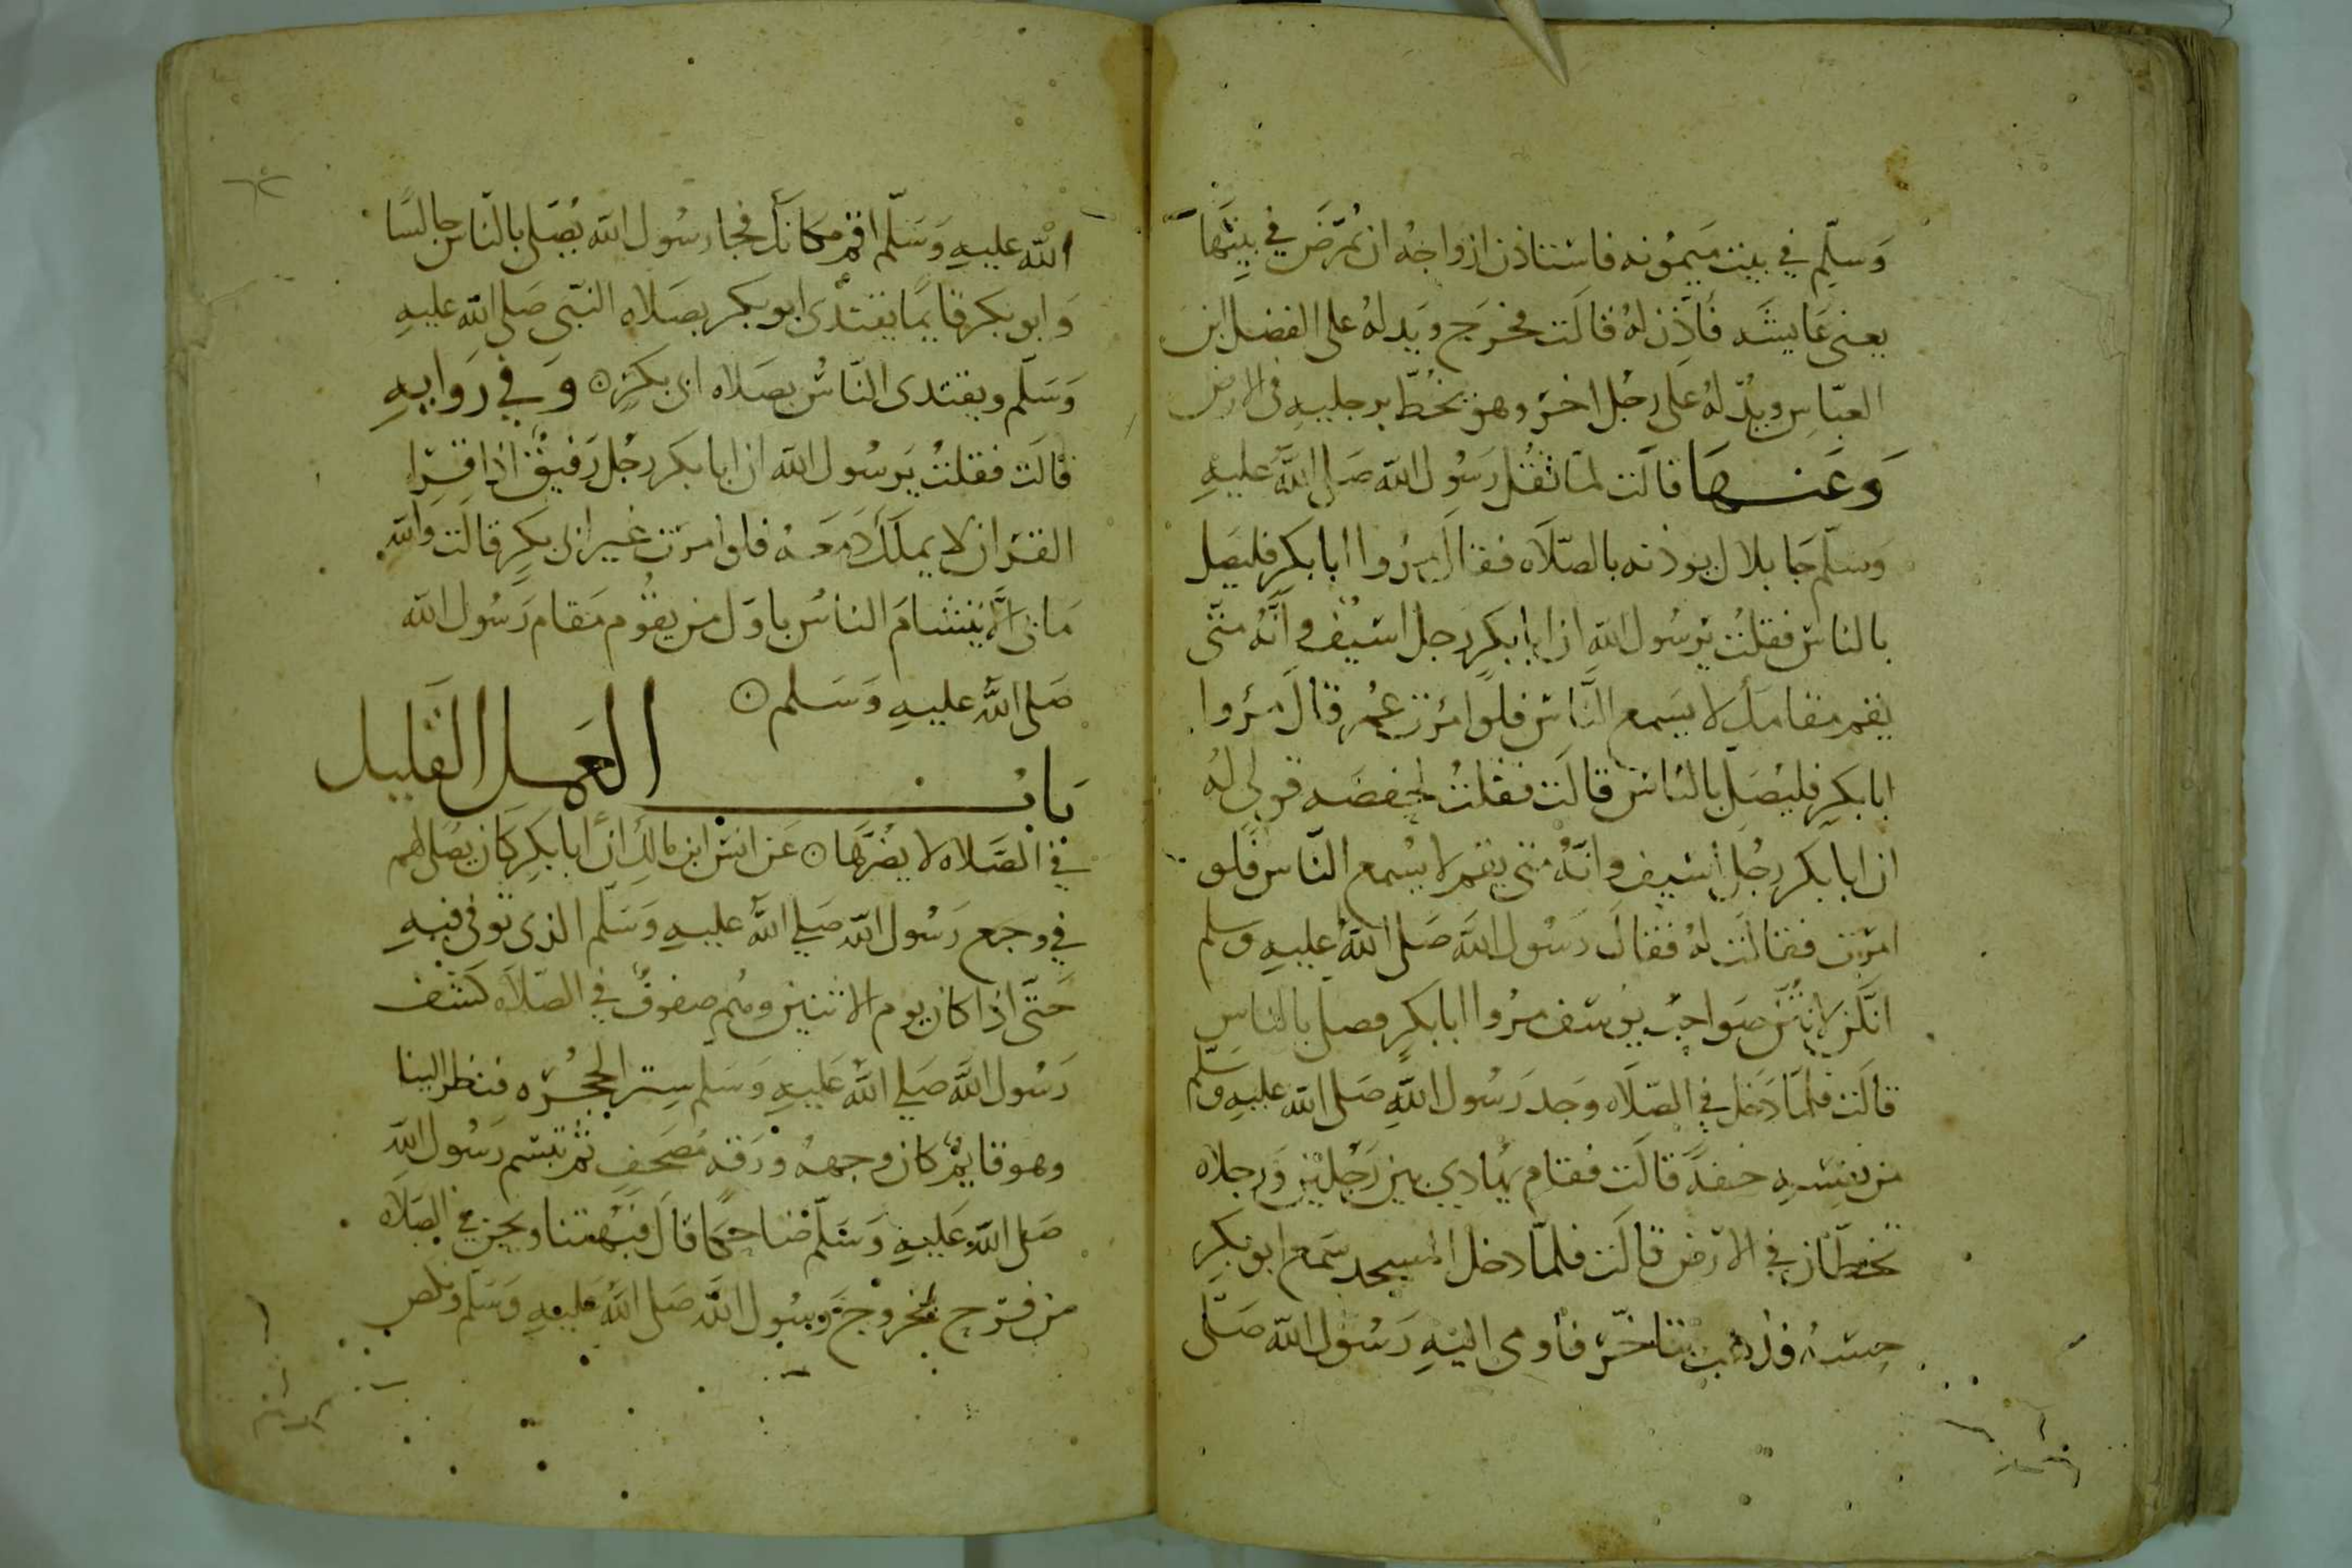 وَسَلّم في بيت ميمونه فاستاذن ازواجُه ان يُمَرّض في بيتها
يعنى عَايشَه فَأذِنّ لهُ قالَت فخرَج ويَد لهُ على الفضل ابن
العبّاس ويدٌ لهُ عَلى رجُل اخرَ وهو يخُطّ برجليهِ في الارض
وَعَنها قالَت لمّا ثقُل رَسُول الله صَلى اللهُ عليهِ
وَسَلّم جَا بلال يوذنه بالصّلاَه فقال مرُوا ابا بَكرٍ فليصَل
بالناس فقلتُ يرسُول اللهِ ان ابا بكرٍ رجل اسَيْف وانَّهُ متى
يقم مقامك لا يسَمع النّاس فلو امَرت عمُر قالَ مرُوا
ابا بَكرٍ فليُصَلّ بالناس قالَت فقلتُ لحفصَه قولى لهُ
ان ابا بَكر رجُل أسَيف وانّهُ متى يقم لا يسُمع النّاس فلو
امرَت فقالَت لهُ فقالَ رَسُول الله صَلى اللهُ عليهِ وسلم
انّكن لانتُنّ صَواحِب يوسَف مرُوا ابا بكرٍ فصل بالناسِ
قالَت فلمّا دَخل في الصّلاَه وَجد رَسُول اللهِ صَلى الله عليهِ وسَلّم
من نفسِهِ خفةً قالَت فقام يُهادي بين رَجُليْن وَرجلاه
تخطّان في الارض قالَت فلمّا دخل المسجد سَمع ابو بَكرٍ
حِسّهُ فذهب يتاخّر فأومى اليْهِ رَسُول الله صَلّى
اللهُ عليهِ وَسَلّم اقم مكانَك فجا رسُول الله يُصَلى بالنّاس جالسًا
وَابو بكر قايمًا يقتدى ابو بكر بصَلاه النّبى صَلى الله عليهِ
وَسَلّم ويقتدى النّاسُ بصَلاه ابى بكرٍ ۞ وَفي رَوايهِ
قالَت فقلتُ يَرسُول الله ان ابا بَكر رجُل رَفيقٌ اذا قرَا
القرَان لا يملكُ دَمعَهُ فلو امرَت غير ابى بكرٍ قالَت وَاللهِ
مَا بى الاّ يَتشامَ الناسُ باوّل من يقُوم مَقام رَسُول الله
صَلى اللهُ عليهِ وَسَلم ۞
بَابُ العَمل القَليل
في الصَلاه لا يضُرّها ۞ عَن انسَ ابن مالك انّ ابا بكرٍ كان يصَلى لهم
في وجع رَسُول الله صَلي اللهُ عليهِ وَسَلّم الذى توفى فيهِ
حَتّى اذا كان يوم الاثنين وهُم صفوفٌ في الصّلاَه كشَف
رَسُول اللهَ صَلي اللهُ عَليهِ وَسَلم سِتر الحجُرَه فنظر الينا
وهو قايمٌ كان وجههُ ورَقه مُصحَفٍ ثم تبسّم رَسُول اللهِ
صَلى الله عَليهِ وَسَلّم ضَاحكًا قالَ فبُهتنا ونحن في الصَلاَه
من فرَح بخروج رسُول الله صَلى اللهُ عليهِ وَسَلّم ونكص